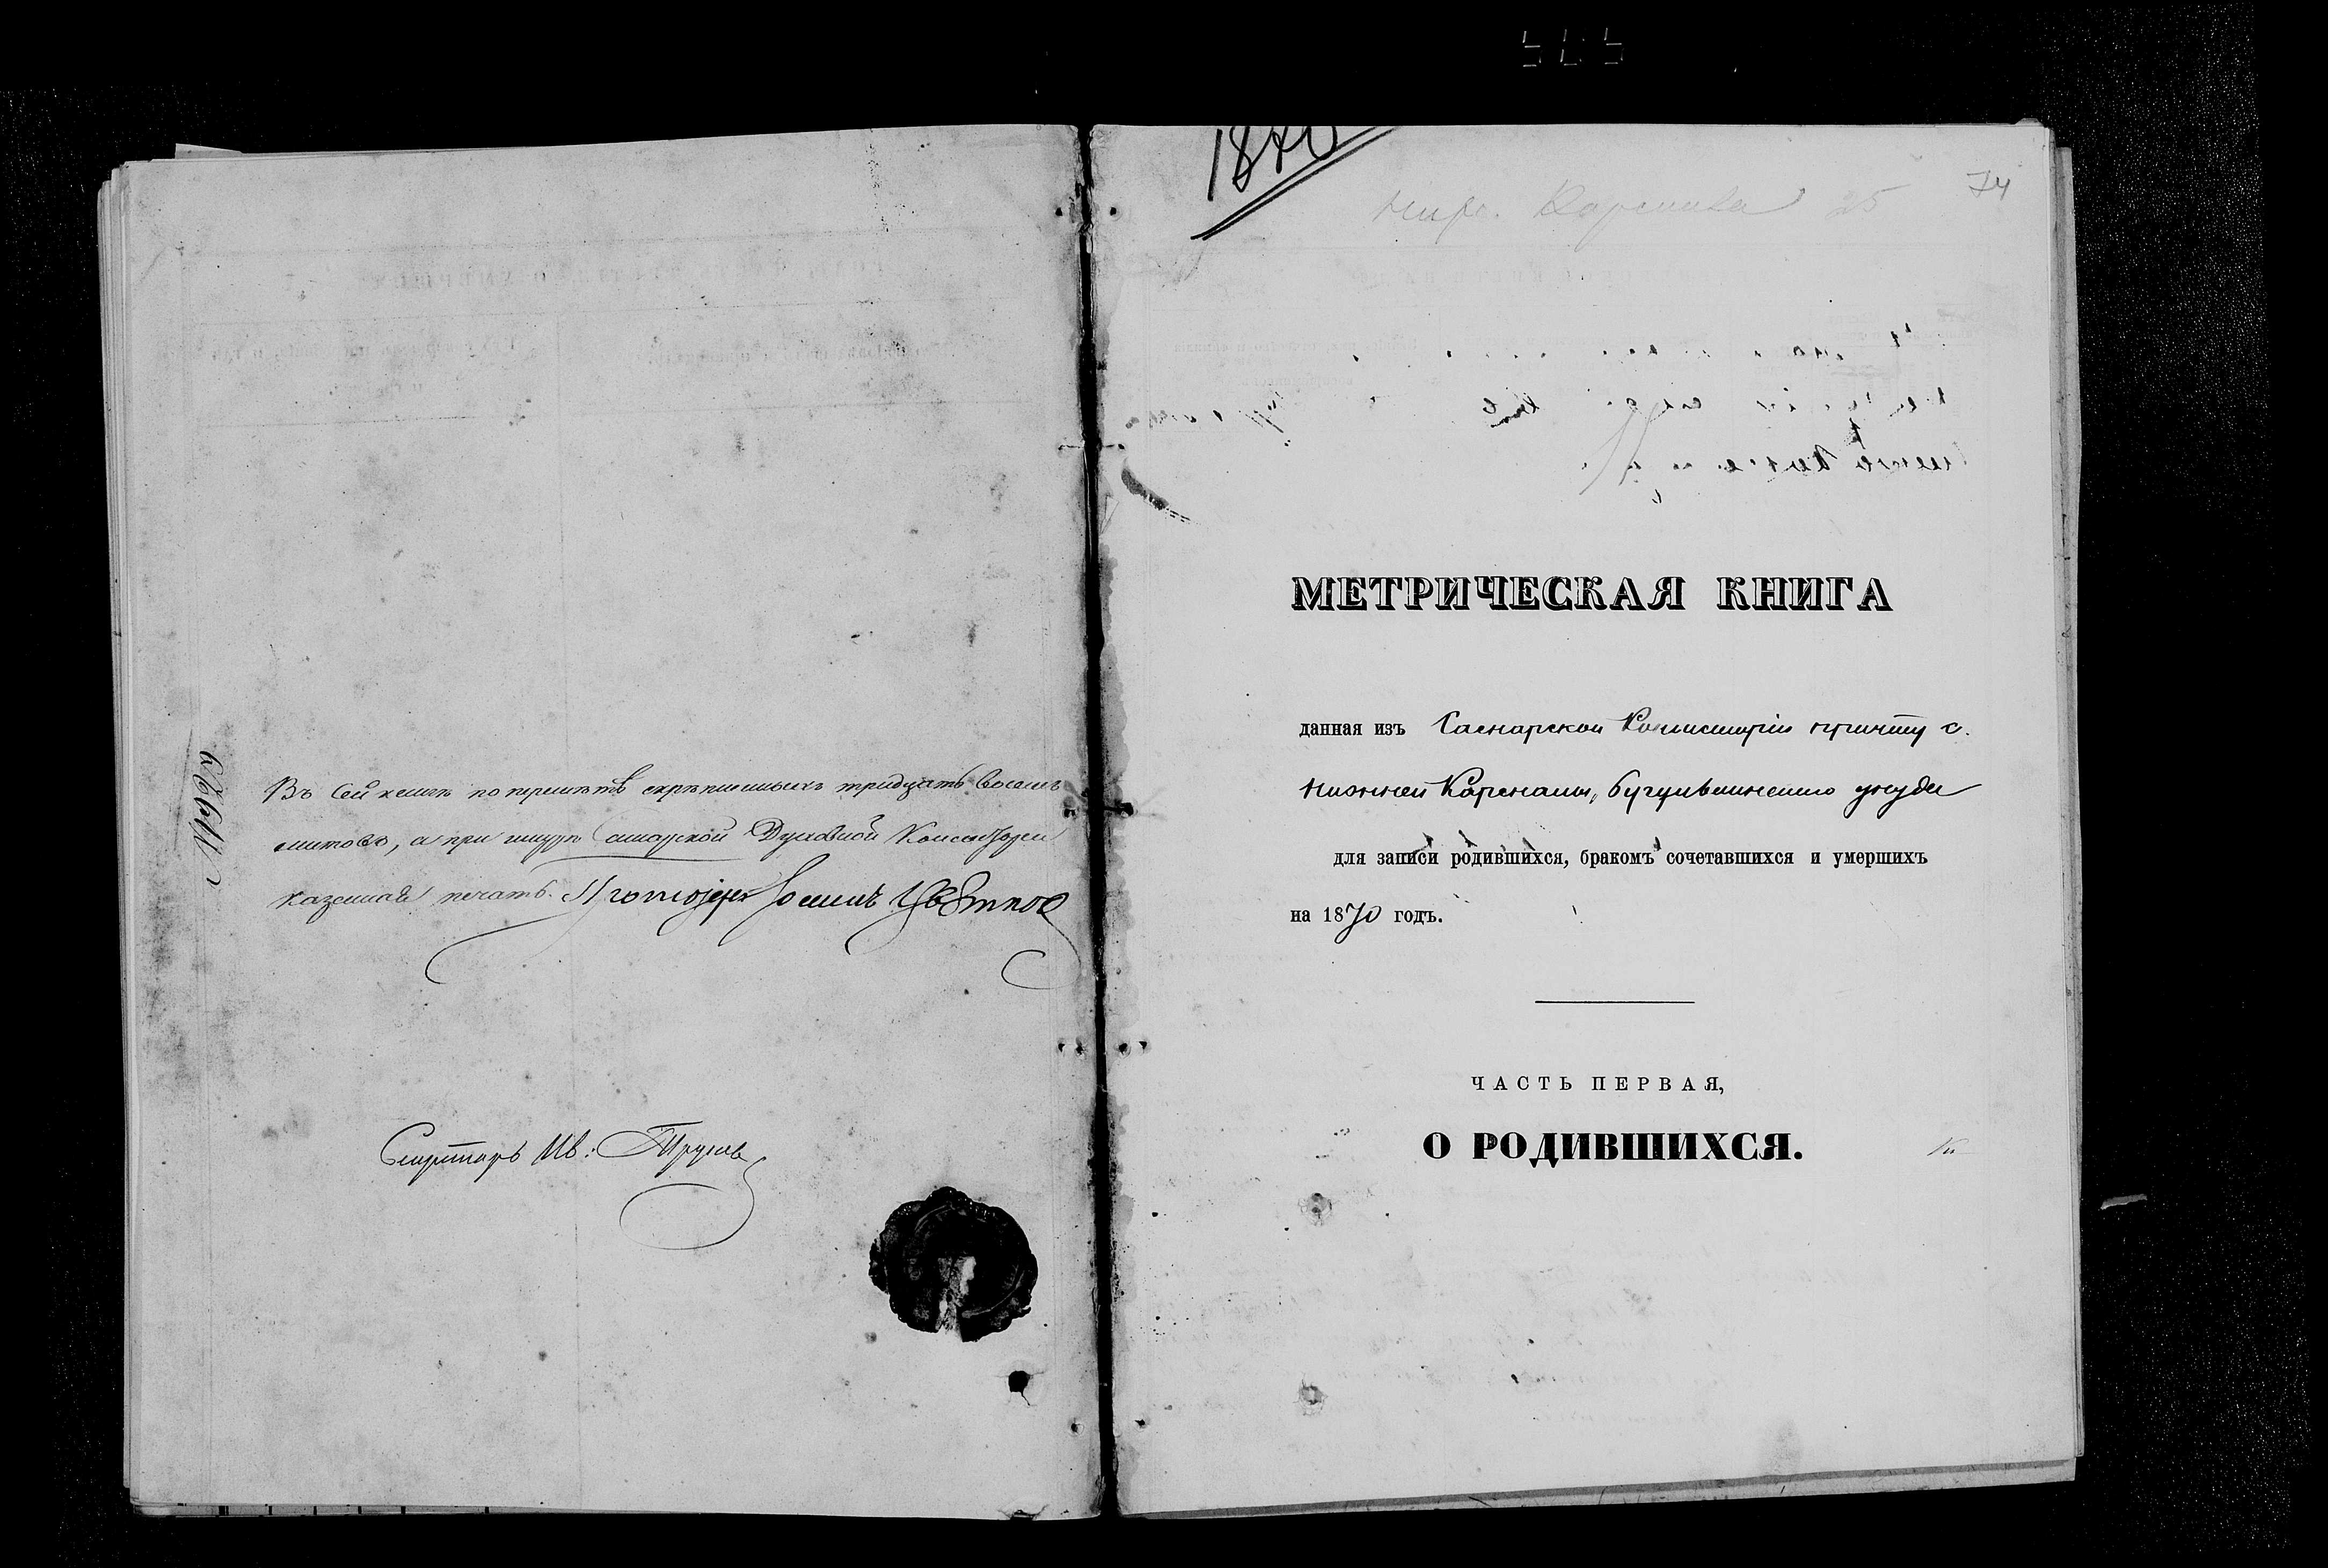 № 1629
Въ сей книгѣ по перечнѣтѣ скрѣпленныхъ тридцать восемь
листовъ, а при шнурѣ Самарской Духовной Консисторіи
казенная печать. Протоіерей Іоаннъ Цвѣтков
Секретарь Ив:
1870
Ниж. Кармалка 25
74
МЕТРИЧЕСКАЯ КНИГА
данная изъ Самарской Консисторіи причту с.
Нижней Кармалки, Бугульминскаго уѣзда
для записи родившихся, бракомъ сочетавшихся и умершихъ
на 1870 годъ.
ЧАСТЬ ПЕРВАЯ,
О РОДИВШИХСЯ.